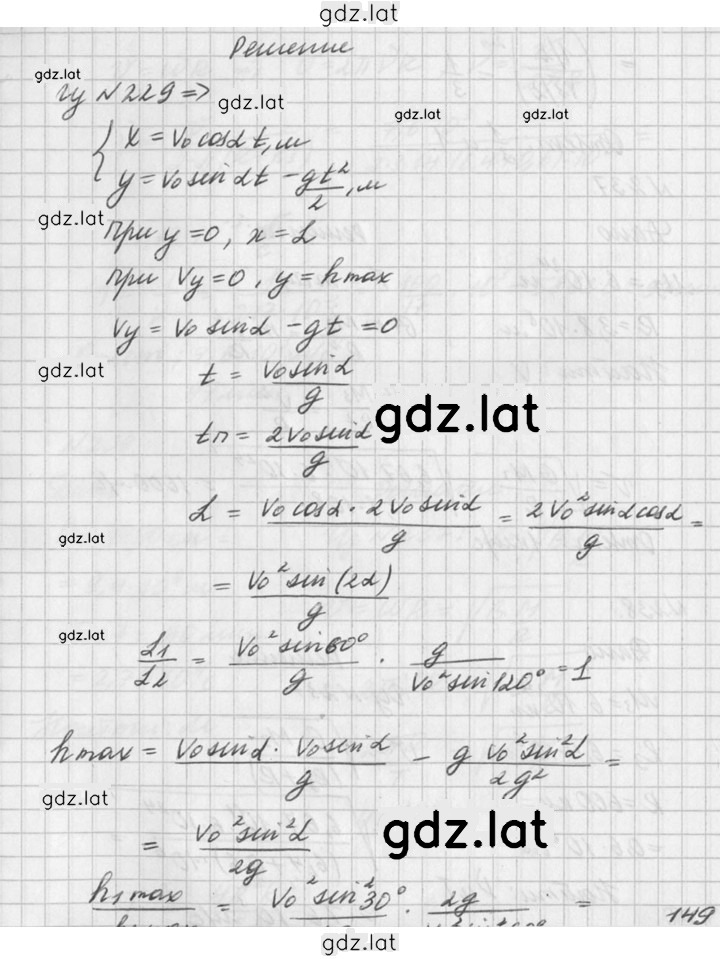 gdz.lat
Решение
gdz.lat
из №229 =>
gdz.lat
gdz.lat
{ x = v₀cosα t, м
y = v₀sinαt − gt²/2, м
gdz.lat
при y=0, x = L
при Vy=0, y = hmax
Vy = V₀ sinα − gt = 0
gdz.lat
t = V₀sinα/g
gdz.lat
tп = 2V₀sinα/g
L = V₀cosα · 2V₀sinα/g = 2V₀²sinαcosα/g =
gdz.lat
= V₀²sin(2α)/g
gdz.lat
L₁/L₂ = V₀²sin60°/g · g/V₀²sin120° = 1
hmax = V₀sinα · V₀sinα/g − g V₀²sin²α/2g² =
gdz.lat
= V₀²sin²α/2g
gdz.lat
h₁max = V₀²sin²30° · 2g =
149
gdz.lat